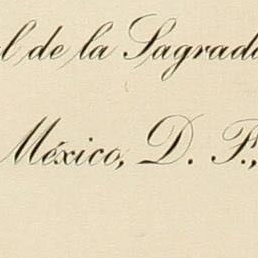 l de la Sagrada
México, D. F.,